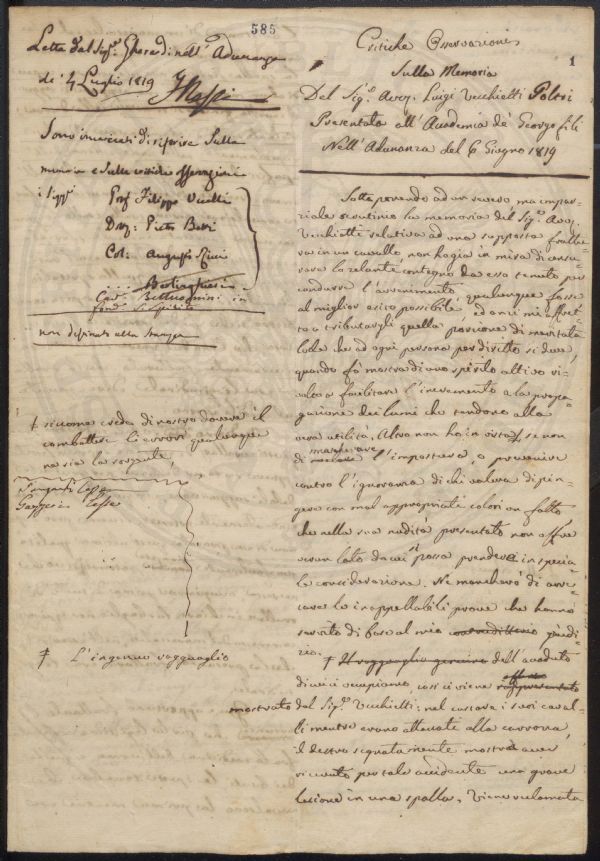 585
Letta dal Sigr. Gherardi nell' Adunanza
di 4 Luglio 1819
Sono incaricati di riferire sulla
memoria e sulle critiche osservazioni
i Sigri
Prof. Filippo
Dott. Pietro Betti
Col: Augusto Ricci
Bertinghieri
Cav.
fond.
non destinato alla stampa
siccome credo di nostro dovere il
combattere li errori qualunque
ne sia la sorgente,
L'ingenuo ragguaglio
Critiche Osservazioni
1
Sulla Memoria
Del Sigr. Avv. Luigi Vecchietti Poltri
Presentata all' Accademia de' Georgofili
Nell' Adunanza del 6 Giugno 1819
Sottoponendo ad un severo ma impar-
ziale scrutinio la memoria del Sigr. Avv.
Vecchietti relativa ad una supposta frattu-
ra in un cavallo non ho già in mira di censu-
rare lo zelante contegno da esso tenuto per
condurre l'avvenimento, qualunque fosse
al miglior esito possibile, ed anzi mi affret-
to a tributargli quella porzione di meritata
lode che ad ogni persona per diritto si deve,
quando fà mostra di uno spirito attivo ri-
volto a facilitare l'incremento e la propa-
gazione dei lumi che tendono alla
vera utilità. Altro non ho in vista, se non
di smascherare l'impostura, o prevenire
contro l'ignoranza di chi voleva dipin-
gere con mal appropriati colori un fatto
che nella sua nudità presentato non offre
verun lato da cui si possa prendere in specia-
le considerazione. Ne mancherò di arre-
care le inappellabili prove che hanno
servito di base al mio contradittorio giudi-
zio.
Il ragguaglio genuino dell' accaduto
di cui ci occupiamo, così ci viene
mostrato dal Sigr. Vecchietti: nel cascare i suoi caval-
li mentre erano attaccati alla carrozza,
il destro segnatamente mostrò aver
ricevuto per tale accidente una grave
lesione in una spalla. Viene reclamata